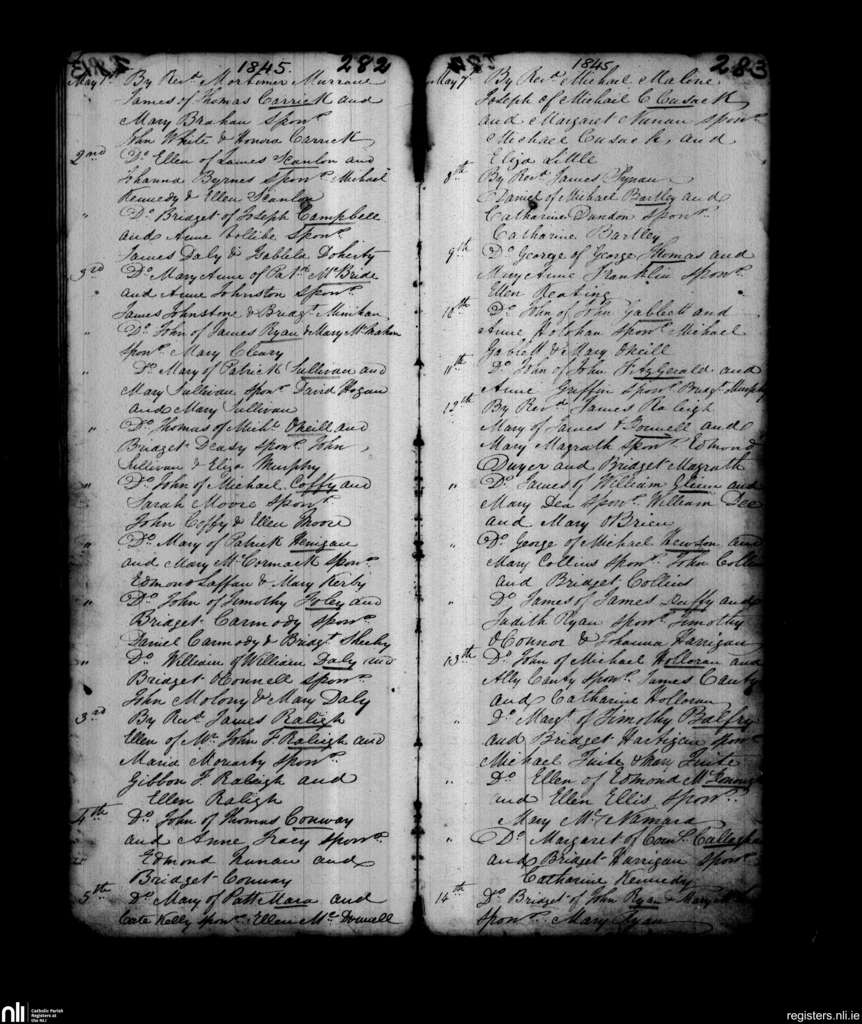 1845. 282
May 1st By Revd. Mortimer Murrane
James of Thomas Carrick and
Mary Brahan Sponrs.
John White & Honora Carrick
2nd Do. Ellen of James Scanlon and
Johanna Byrnes Sponrs. Michael
Kennedy & Ellen Scanlon
" Do. Bridget of Joseph Campbell
and Anne Sponrs.
James Daly & Doherty
3rd Do. Mary Anne of Patk. McBride
and Anne Johnston Sponrs.
James Johnstone & Bridgt. Minihan
" Do. John of James Ryan & Mary McMahon
sponr. Mary Cleary
" Do. Mary of Patrick Sullivan and
Mary Sullivan sponrs. David Hogan
and Mary Sullivan
" Do. Thomas of Michl. ONeill and
Bridget Deasy sponrs. John
Sullivan & Eliza Murphy
" Do. John of Michael Coffy and
Sarah Moore sponrs.
John Coffy & Ellen Moore
" Do. Mary of Patrick Henigan
and Mary McCormack sponrs.
Edmond Laffan & Mary Kirby
" Do. John of Timothy Foley and
Bridget Carmody sponrs.
Daniel Carmody & Bridgt. Sheehy
" Do. William of William Daly and
Bridget OConnell sponrs.
John Molony & Mary Daly
3rd By Revd. James Raleigh
Ellen of Mr. John F. Raleigh and
Maria Moriarty sponrs.
Gibbon F. Raleigh and
Ellen Raligh
4th Do. John of Thomas Conway
and Anne Tracy sponrs.
" Edmond Nunan and
Bridget Conway
5th Do. Mary of Patt Mara and
Cate Kelly sponr. Ellen McDonnell
1845 283
May 7th By Revd. Michael Malone
Joseph of Michael C Cusack
and Margaret Nunan sponrs.
Michael Cusack and
Eliza Little
8th By Revd. James Hynan
Daniel of Michael Bartley and
Catharine Dundon sponr.
Catharine Bartley
9th Do. George of George Thomas and
Mary Anne Franklin sponr.
Ellen Keating
10th Do. John of John Gabbett and
Anne Holohan sponrs. Michael
Gabbett & Mary ONeill
11th Do. John of John FitzGerald and
Anne Griffin sponr. Bridgt. Murphy
12th By Revd. James Raleigh
Mary of James and
Mary Magrath sponrs. Edmond
Dwyer and Bridget Magrath
" Do. James of William Gleeson and
Mary Dea sponrs. William Dee
and Mary OBrien
" Do. George of Michael Hewson and
Mary Collins sponrs. John Collins
and Bridget Collins
" Do. James of James Duffy and
Judith Ryan sponrs. Timothy
OConnor & Johanna Harrigan
13th Do. John of Michael Holloran and
Ally Canty sponrs. James Canty
and Catharine Holloran
" Do. Margt. of Timothy Balfry
and Bridget Hartigan sponrs.
Michael Fuite & Mary Fuite
" Do. Ellen of Edmond
and Ellen Ellis, sponr.
Mary McNamara
" Do. Margaret of Callaghan
and Bridget Harrigan sponr.
Catharine Kennedy
14th Do. Bridget of John Ryan & Mary
sponr. Mary Ryan
nli Catholic Parish
Registers at
the NLI
registers.nli.ie